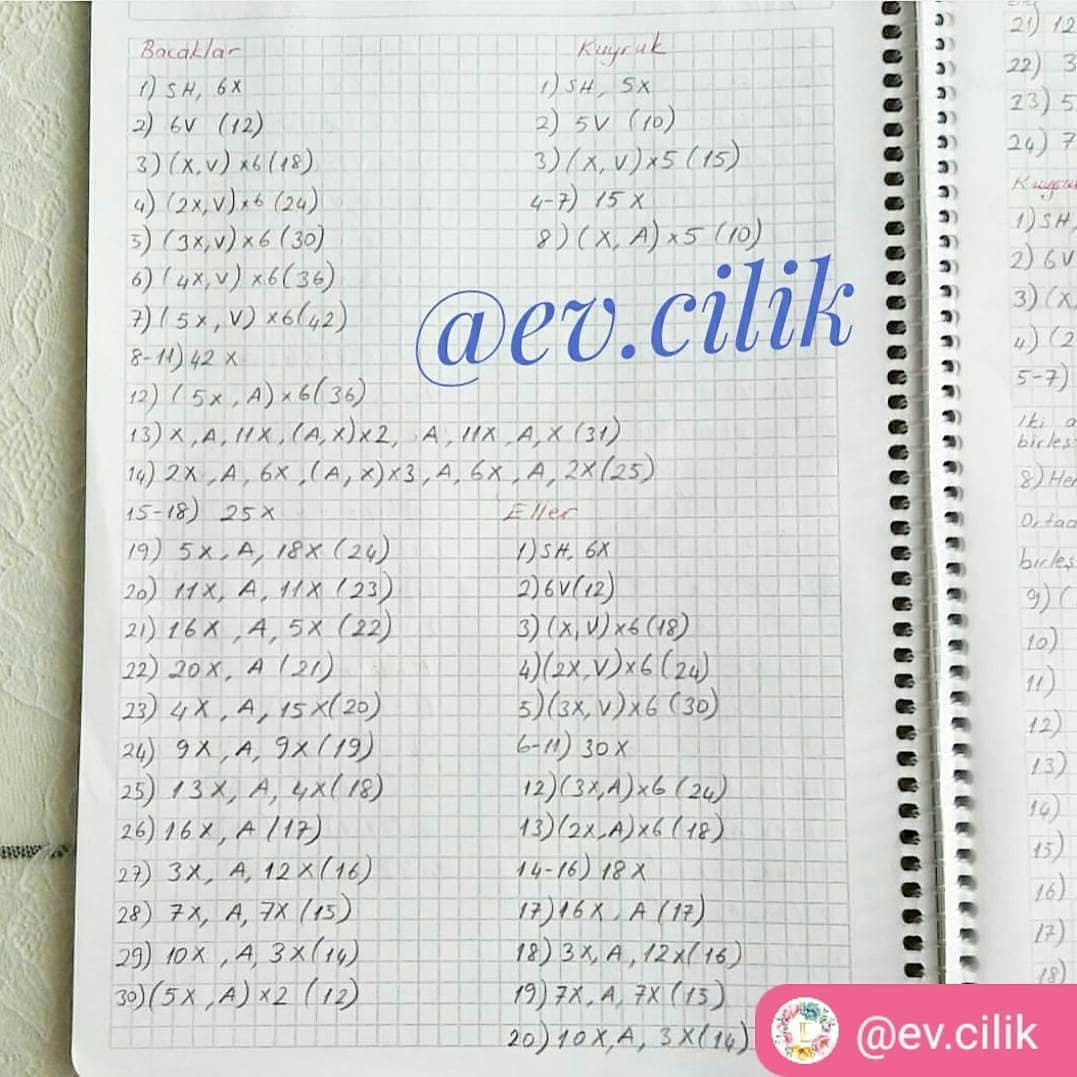 Bacaklar
1) SH, 6X
2) 6V (12)
3) (X,V) x6 (18)
4) (2X,V) x6 (24)
5) (3X,V) x6 (30)
6) (4X,V) x6 (36)
7) (5X,V) x6 (42)
8-11) 42 X
12) (5X,A) x6 (36)
13) X,A,11X,(A,X)x2, A,11X,A,X (31)
14) 2X,A,6X,(A,X)x3,A,6X,A,2X (25)
15-18) 25X
19) 5X,A,18X (24)
20) 11X,A,11X (23)
21) 16X,A,5X (22)
22) 20X,A (21)
23) 4X,A,15X (20)
24) 9X,A,9X (19)
25) 13X,A,4X (18)
26) 16X,A (17)
27) 3X,A,12X (16)
28) 7X,A,7X (15)
29) 10X,A,3X (14)
30) (5X,A) x2 (12)
Kuyruk
1) SH, 5X
2) 5V (10)
3) (X,V) x5 (15)
4-7) 15X
8) (X,A) x5 (10)
@ev.cilik
Eller
1) SH, 6X
2) 6V (12)
3) (X,V) x6 (18)
4) (2X,V) x6 (24)
5) (3X,V) x6 (30)
6-11) 30X
12) (3X,A) x6 (24)
13) (2X,A) x6 (18)
14-16) 18X
17) 16X,A (17)
18) 3X,A,12X (16)
19) 7X,A,7X (15)
20) 10X,A,3X (14)
21) 12
22) 3
23) 5
24) 7
1) SH,
2) 6V
3) (X,
4) (2
5-7)
İki
birles
8) Her
Ortad
birles
9) (
10)
11)
12)
13)
14)
15)
16)
17)
18)
@ev.cilik